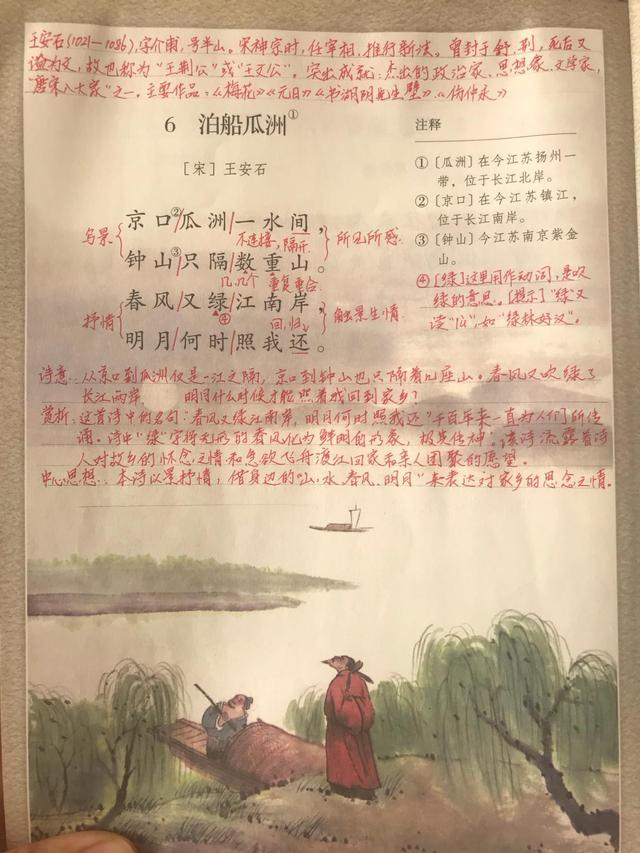 王安石(1021—1086),字介甫,号半山。宋神宗时,任宰相,推行新法。曾封于舒、荆,死后又
谥为文,故也称为"王荆公"或"王文公"。突出成就:杰出的政治家、思想家、文学家,
"唐宋八大家"之一。主要作品:《梅花》《元日》《书湖阴先生壁》《伤仲永》
6 泊船瓜洲①
[宋]王安石
京口②/瓜洲/一水间,
不连接,隔开
钟山③/只隔/数重山。
几,几个 重复,重合
写景
所见所感
春风/又绿/江南岸,
④ 回,归
明月/何时/照我还。
抒情
触景生情
注释
①[瓜洲]在今江苏扬州一
带,位于长江北岸。
②[京口]在今江苏镇江,
位于长江南岸。
③[钟山]今江苏南京紫金
山。
④[绿]这里用作动词,是吹
绿的意思。[提示]"绿"又
读"lù",如"绿林好汉"。
诗意:从京口到瓜洲仅是一江之隔,京口到钟山也只隔着几座山。春风又吹绿了
长江两岸,明月什么时候才能照着我回到家乡?
赏析:这首诗中的名句:"春风又绿江南岸,明月何时照我还"千百年来一直为人们所传
诵。诗中"绿"字将无形的春风化为鲜明的形象,极其传神。该诗流露着诗
人对故乡的怀念之情和急欲飞舟渡江回家和亲人团聚的愿望。
中心思想:本诗以景抒情,借身边的"山、水、春风、明月"来表达对家乡的思念之情。